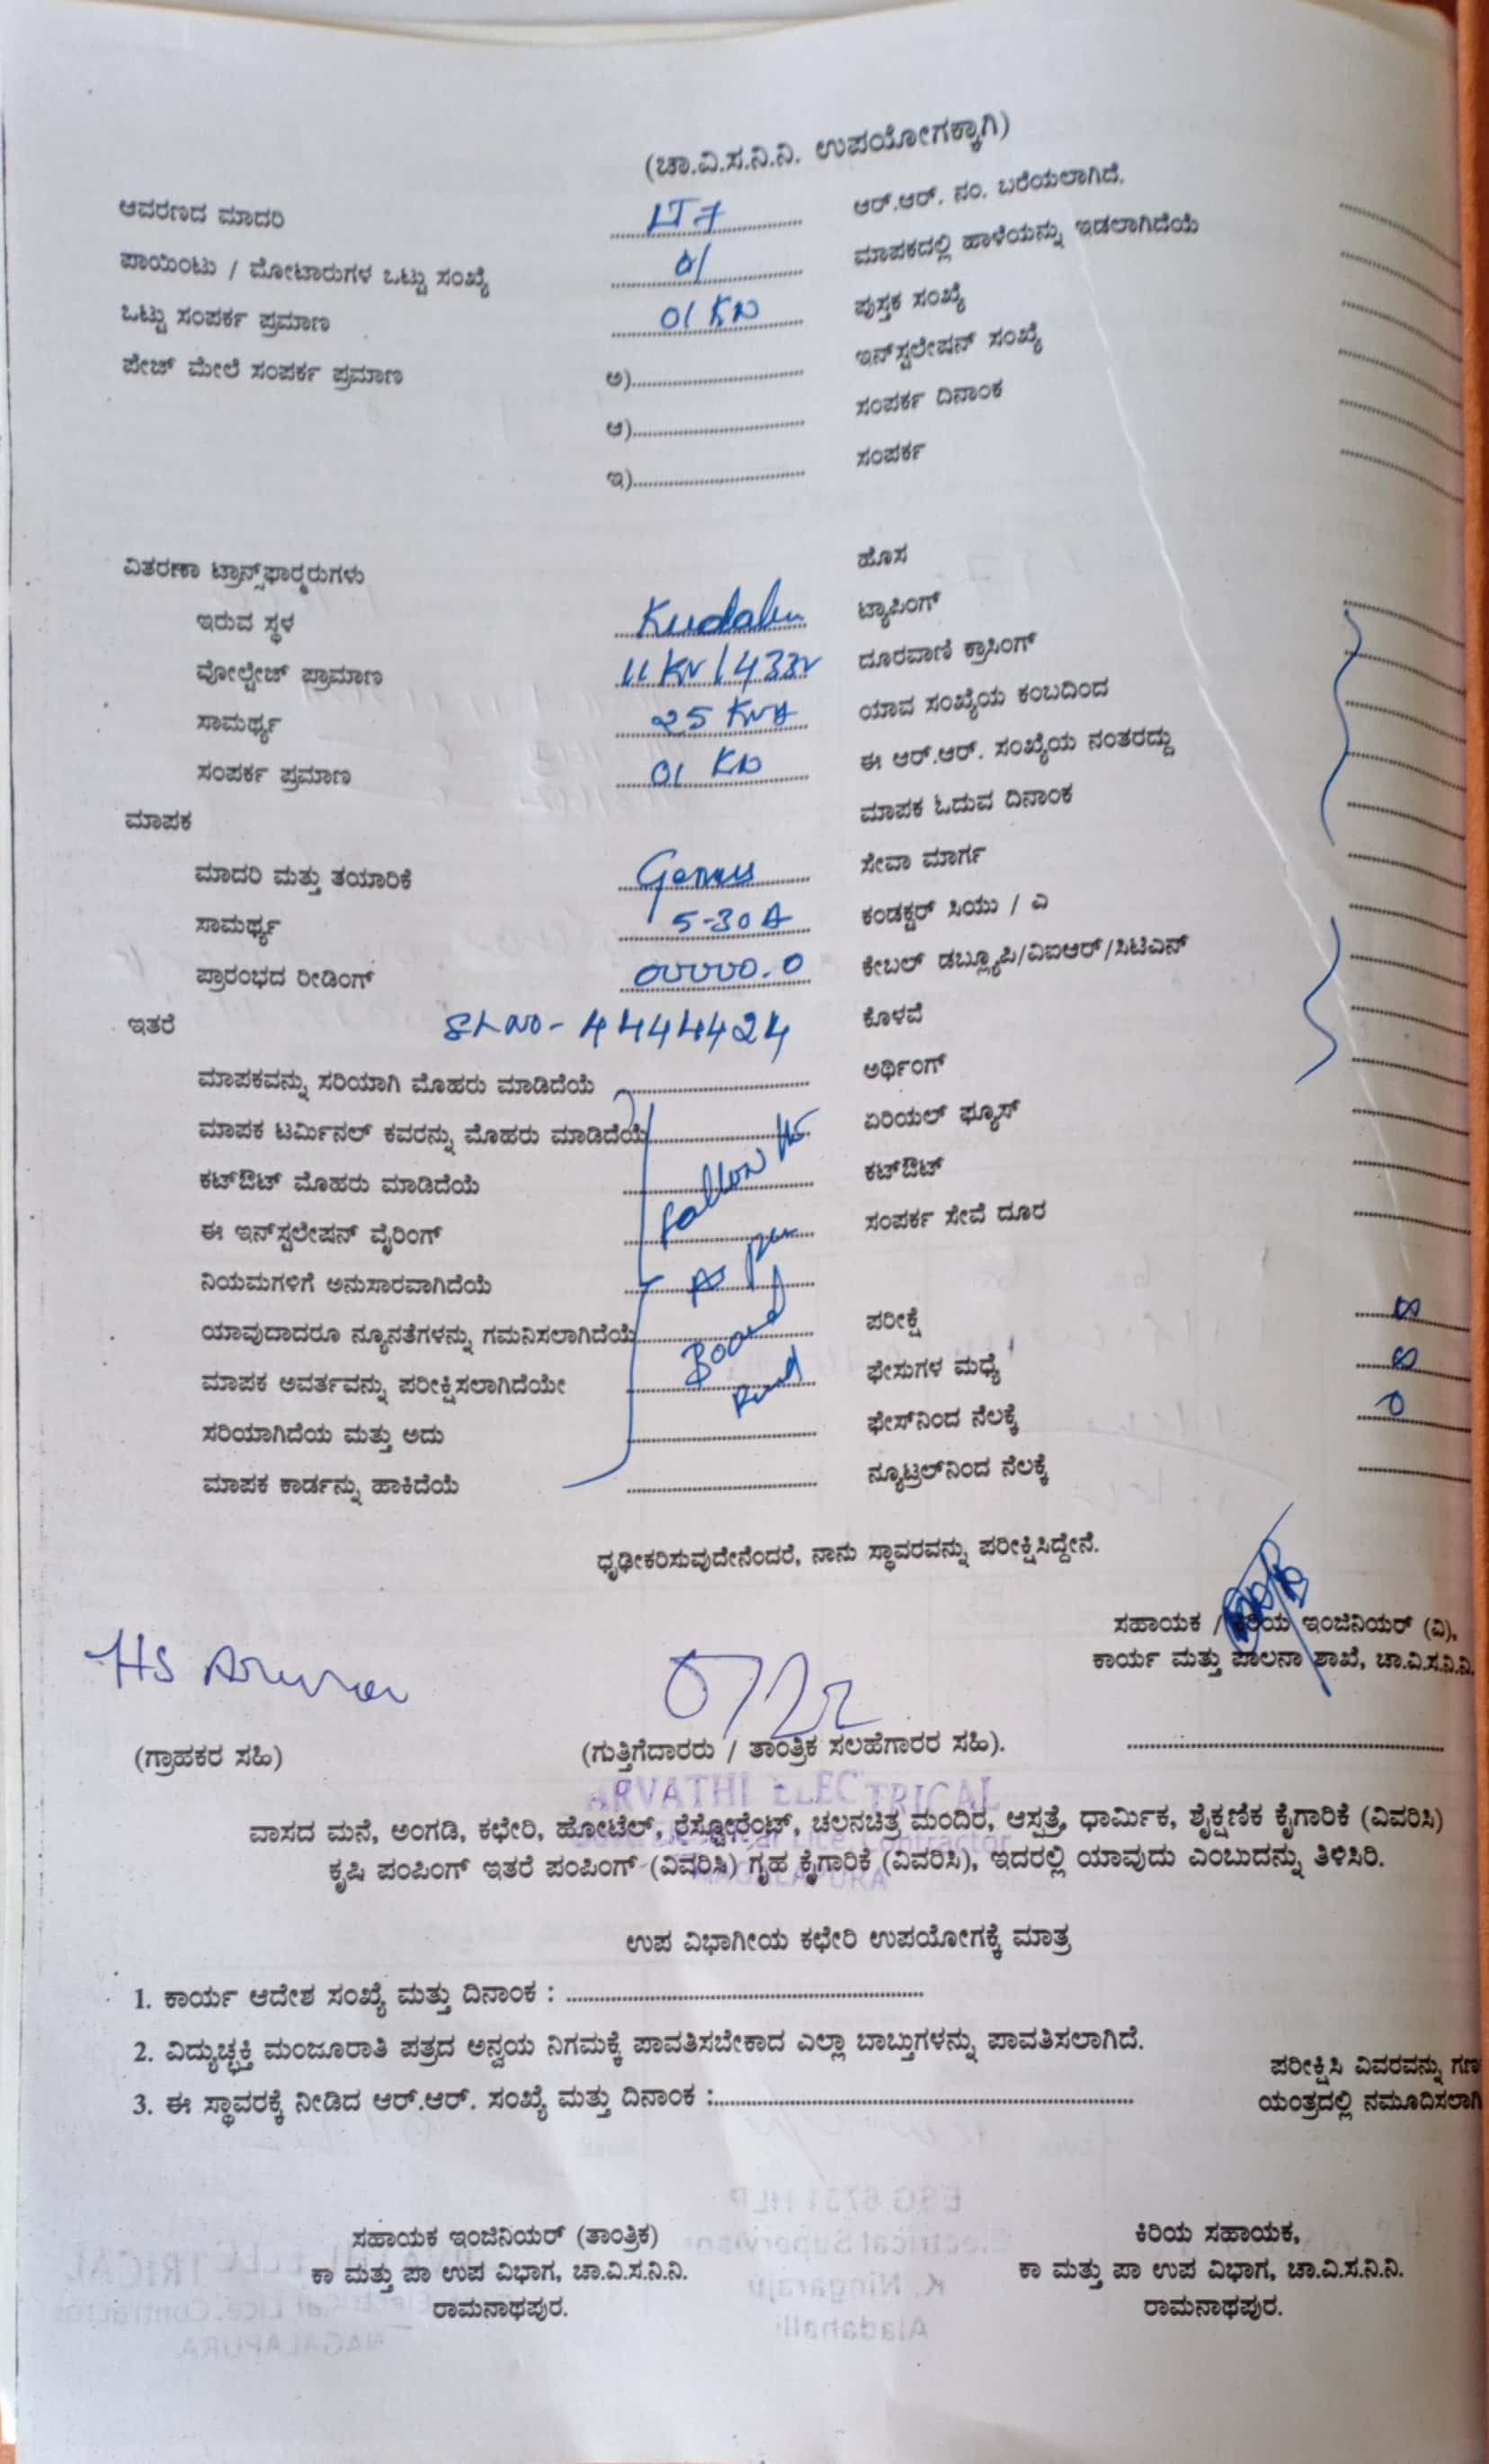 (ಚಾ.ವಿ.ಸ.ನಿ.ನಿ. ಉಪಯೋಗಕ್ಕಾಗಿ)
ಆವರಣದ ಮಾದರಿ LT7 ಆರ್.ಆರ್. ನಂ. ಬರೆಯಲಾಗಿದೆ.
ಪಾಯಿಂಟು / ಮೋಟಾರುಗಳ ಒಟ್ಟು ಸಂಖ್ಯೆ 01 ಮಾಪಕದಲ್ಲಿ ಹಾಳೆಯನ್ನು ಇಡಲಾಗಿದೆಯೆ
ಒಟ್ಟು ಸಂಪರ್ಕ ಪ್ರಮಾಣ 01 KW ಪುಸ್ತಕ ಸಂಖ್ಯೆ
ಪೇಜ್ ಮೇಲೆ ಸಂಪರ್ಕ ಪ್ರಮಾಣ ಅ) ಇನ್‌ಸ್ಟಲೇಷನ್ ಸಂಖ್ಯೆ
ಆ) ಸಂಪರ್ಕ ದಿನಾಂಕ
ಇ) ಸಂಪರ್ಕ
ವಿತರಣಾ ಟ್ರಾನ್ಸ್‌ಫಾರ್‍ಮರುಗಳು ಹೊಸ
ಇರುವ ಸ್ಥಳ Kudalu ಟ್ಯಾಪಿಂಗ್
ವೋಲ್ಟೇಜ್ ಪ್ರಾಮಾಣ 11 KV / 433V ದೂರವಾಣಿ ಕ್ರಾಸಿಂಗ್
ಸಾಮರ್ಥ್ಯ 25 KVA ಯಾವ ಸಂಖ್ಯೆಯ ಕಂಬದಿಂದ
ಸಂಪರ್ಕ ಪ್ರಮಾಣ 01 KW ಈ ಆರ್.ಆರ್. ಸಂಖ್ಯೆಯ ನಂತರದ್ದು
ಮಾಪಕ ಮಾಪಕ ಓದುವ ದಿನಾಂಕ
ಮಾದರಿ ಮತ್ತು ತಯಾರಿಕೆ Genus ಸೇವಾ ಮಾರ್ಗ
ಸಾಮರ್ಥ್ಯ 5-30 A ಕಂಡಕ್ಟರ್ ಸಿಯು / ಎ
ಪ್ರಾರಂಭದ ರೀಡಿಂಗ್ 00000.0 ಕೇಬಲ್ ಡಬ್ಲ್ಯೂಪಿ/ವಿಐಆರ್/ಸಿಟಿಎನ್
ಇತರೆ SL NO - 4444424 ಕೊಳವೆ
ಮಾಪಕವನ್ನು ಸರಿಯಾಗಿ ಮೊಹರು ಮಾಡಿದೆಯೆ ಅರ್ಥಿಂಗ್
ಮಾಪಕ ಟರ್ಮಿನಲ್ ಕವರನ್ನು ಮೊಹರು ಮಾಡಿದೆಯೆ ಏರಿಯಲ್ ಫ್ಯೂಸ್
ಕಟ್‌ಔಟ್ ಮೊಹರು ಮಾಡಿದೆಯೆ ಕಟ್‌ಔಟ್
ಈ ಇನ್‌ಸ್ಟಲೇಷನ್ ವೈರಿಂಗ್ ಸಂಪರ್ಕ ಸೇವೆ ದೂರ
ನಿಯಮಗಳಿಗೆ ಅನುಸಾರವಾಗಿದೆಯೆ As per
ಯಾವುದಾದರೂ ನ್ಯೂನತೆಗಳನ್ನು ಗಮನಿಸಲಾಗಿದೆಯೆ Board ಪರೀಕ್ಷೆ ∞
ಮಾಪಕ ಅವರ್ತವನ್ನು ಪರೀಕ್ಷಿಸಲಾಗಿದೆಯೇ ಫೇಸುಗಳ ಮಧ್ಯೆ ∞
ಸರಿಯಾಗಿದೆಯ ಮತ್ತು ಅದು ಫೇಸ್‌ನಿಂದ ನೆಲಕ್ಕೆ 0
ಮಾಪಕ ಕಾರ್ಡನ್ನು ಹಾಕಿದೆಯೆ ನ್ಯೂಟ್ರಲ್‌ನಿಂದ ನೆಲಕ್ಕೆ
ಧೃಢೀಕರಿಸುವುದೇನೆಂದರೆ, ನಾನು ಸ್ಥಾವರವನ್ನು ಪರೀಕ್ಷಿಸಿದ್ದೇನೆ.
ಸಹಾಯಕ / ಕಿರಿಯ ಇಂಜಿನಿಯರ್ (ವಿ),
ಕಾರ್ಯ ಮತ್ತು ಪಾಲನಾ ಶಾಖೆ, ಚಾ.ವಿ.ಸ.ನಿ.ನಿ.
(ಗ್ರಾಹಕರ ಸಹಿ) (ಗುತ್ತಿಗೆದಾರರು / ತಾಂತ್ರಿಕ ಸಲಹೆಗಾರರ ಸಹಿ).
ARVATHI ELECTRICAL
ವಾಸದ ಮನೆ, ಅಂಗಡಿ, ಕಛೇರಿ, ಹೋಟೆಲ್, ರೆಸ್ಟೋರೆಂಟ್, ಚಲನಚಿತ್ರ ಮಂದಿರ, ಆಸ್ಪತ್ರೆ, ಧಾರ್ಮಿಕ, ಶೈಕ್ಷಣಿಕ ಕೈಗಾರಿಕೆ (ವಿವರಿಸಿ)
ಕೃಷಿ ಪಂಪಿಂಗ್ ಇತರೆ ಪಂಪಿಂಗ್ (ವಿವರಿಸಿ) ಗೃಹ ಕೈಗಾರಿಕೆ (ವಿವರಿಸಿ), ಇದರಲ್ಲಿ ಯಾವುದು ಎಂಬುದನ್ನು ತಿಳಿಸಿರಿ.
ಉಪ ವಿಭಾಗೀಯ ಕಛೇರಿ ಉಪಯೋಗಕ್ಕೆ ಮಾತ್ರ
1. ಕಾರ್ಯ ಆದೇಶ ಸಂಖ್ಯೆ ಮತ್ತು ದಿನಾಂಕ :
2. ವಿದ್ಯುಚ್ಛಕ್ತಿ ಮಂಜೂರಾತಿ ಪತ್ರದ ಅನ್ವಯ ನಿಗಮಕ್ಕೆ ಪಾವತಿಸಬೇಕಾದ ಎಲ್ಲಾ ಬಾಬ್ತುಗಳನ್ನು ಪಾವತಿಸಲಾಗಿದೆ.
3. ಈ ಸ್ಥಾವರಕ್ಕೆ ನೀಡಿದ ಆರ್.ಆರ್. ಸಂಖ್ಯೆ ಮತ್ತು ದಿನಾಂಕ :
ಪರೀಕ್ಷಿಸಿ ವಿವರವನ್ನು ಗಣ
ಯಂತ್ರದಲ್ಲಿ ನಮೂದಿಸಲಾಗಿ
ಸಹಾಯಕ ಇಂಜಿನಿಯರ್ (ತಾಂತ್ರಿಕ) ಕಿರಿಯ ಸಹಾಯಕ,
ಕಾ ಮತ್ತು ಪಾ ಉಪ ವಿಭಾಗ, ಚಾ.ವಿ.ಸ.ನಿ.ನಿ. ಕಾ ಮತ್ತು ಪಾ ಉಪ ವಿಭಾಗ, ಚಾ.ವಿ.ಸ.ನಿ.ನಿ.
ರಾಮನಾಥಪುರ. ರಾಮನಾಥಪುರ.